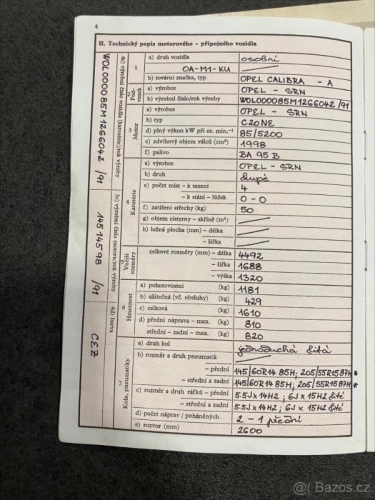 4
II. Technický popis motorového – přípojného vozidla
1
a) druh vozidla osobní
OA-M1-KU
b) tovární značka, typ OPEL CALIBRA - A
2 Podvozek
a) výrobce OPEL - SRN
b) výrobní číslo/rok výroby W0L000085M1266042/91
3 Motor
a) výrobce OPEL - SRN
b) typ C20NE
d) plný výkon kW při ot. min.⁻¹ 85/5200
e) zdvihový objem válců (cm³) 1998
f) palivo BA 95 B
4 Karosérie
a) výrobce OPEL - SRN
b) druh kupé
e) počet míst – k sezení 4
– k stání – lůžek 0 - 0
f) zatížení střechy (kg) 50
g) objem cisterny – skříně (m³)
h) ložná plocha (mm) – délka
– šířka
5 Vnější rozměry
celkové rozměry (mm) – délka 4492
– šířka 1688
– výška 1320
6 Hmotnost
a) pohotovostní (kg) 1181
b) užitečná (vč. obsluhy) (kg) 429
c) celková (kg) 1610
d) přední náprava – max. (kg) 810
střední – zadní – max. (kg) 820
7 Kola, pneumatiky
a) druh kol jednoduchá litá
b) rozměr a druh pneumatik
– přední 145/60R14 85H; 205/55R15 87H *
– střední a zadní 145/60R14 85H; 205/55R15 87H *
c) rozměr a druh ráfků – přední 5.5J x 14H2; 6J x 15H2 lité
– střední a zadní 5.5J x 14H2; 6J x 15H2 lité
d) počet náprav / poháněných 2 - 1 přední
e) rozvor (mm) 2600
3c) výrobní číslo motoru/rok výroby
W0L000085M1266042 /91
14514598 /91
4d) barva
@( Bazos.cz